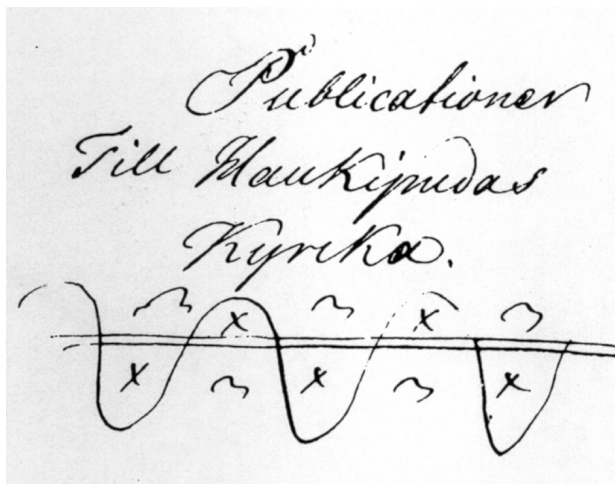 Publicationer
Till Haukipudas
Kyrcka.